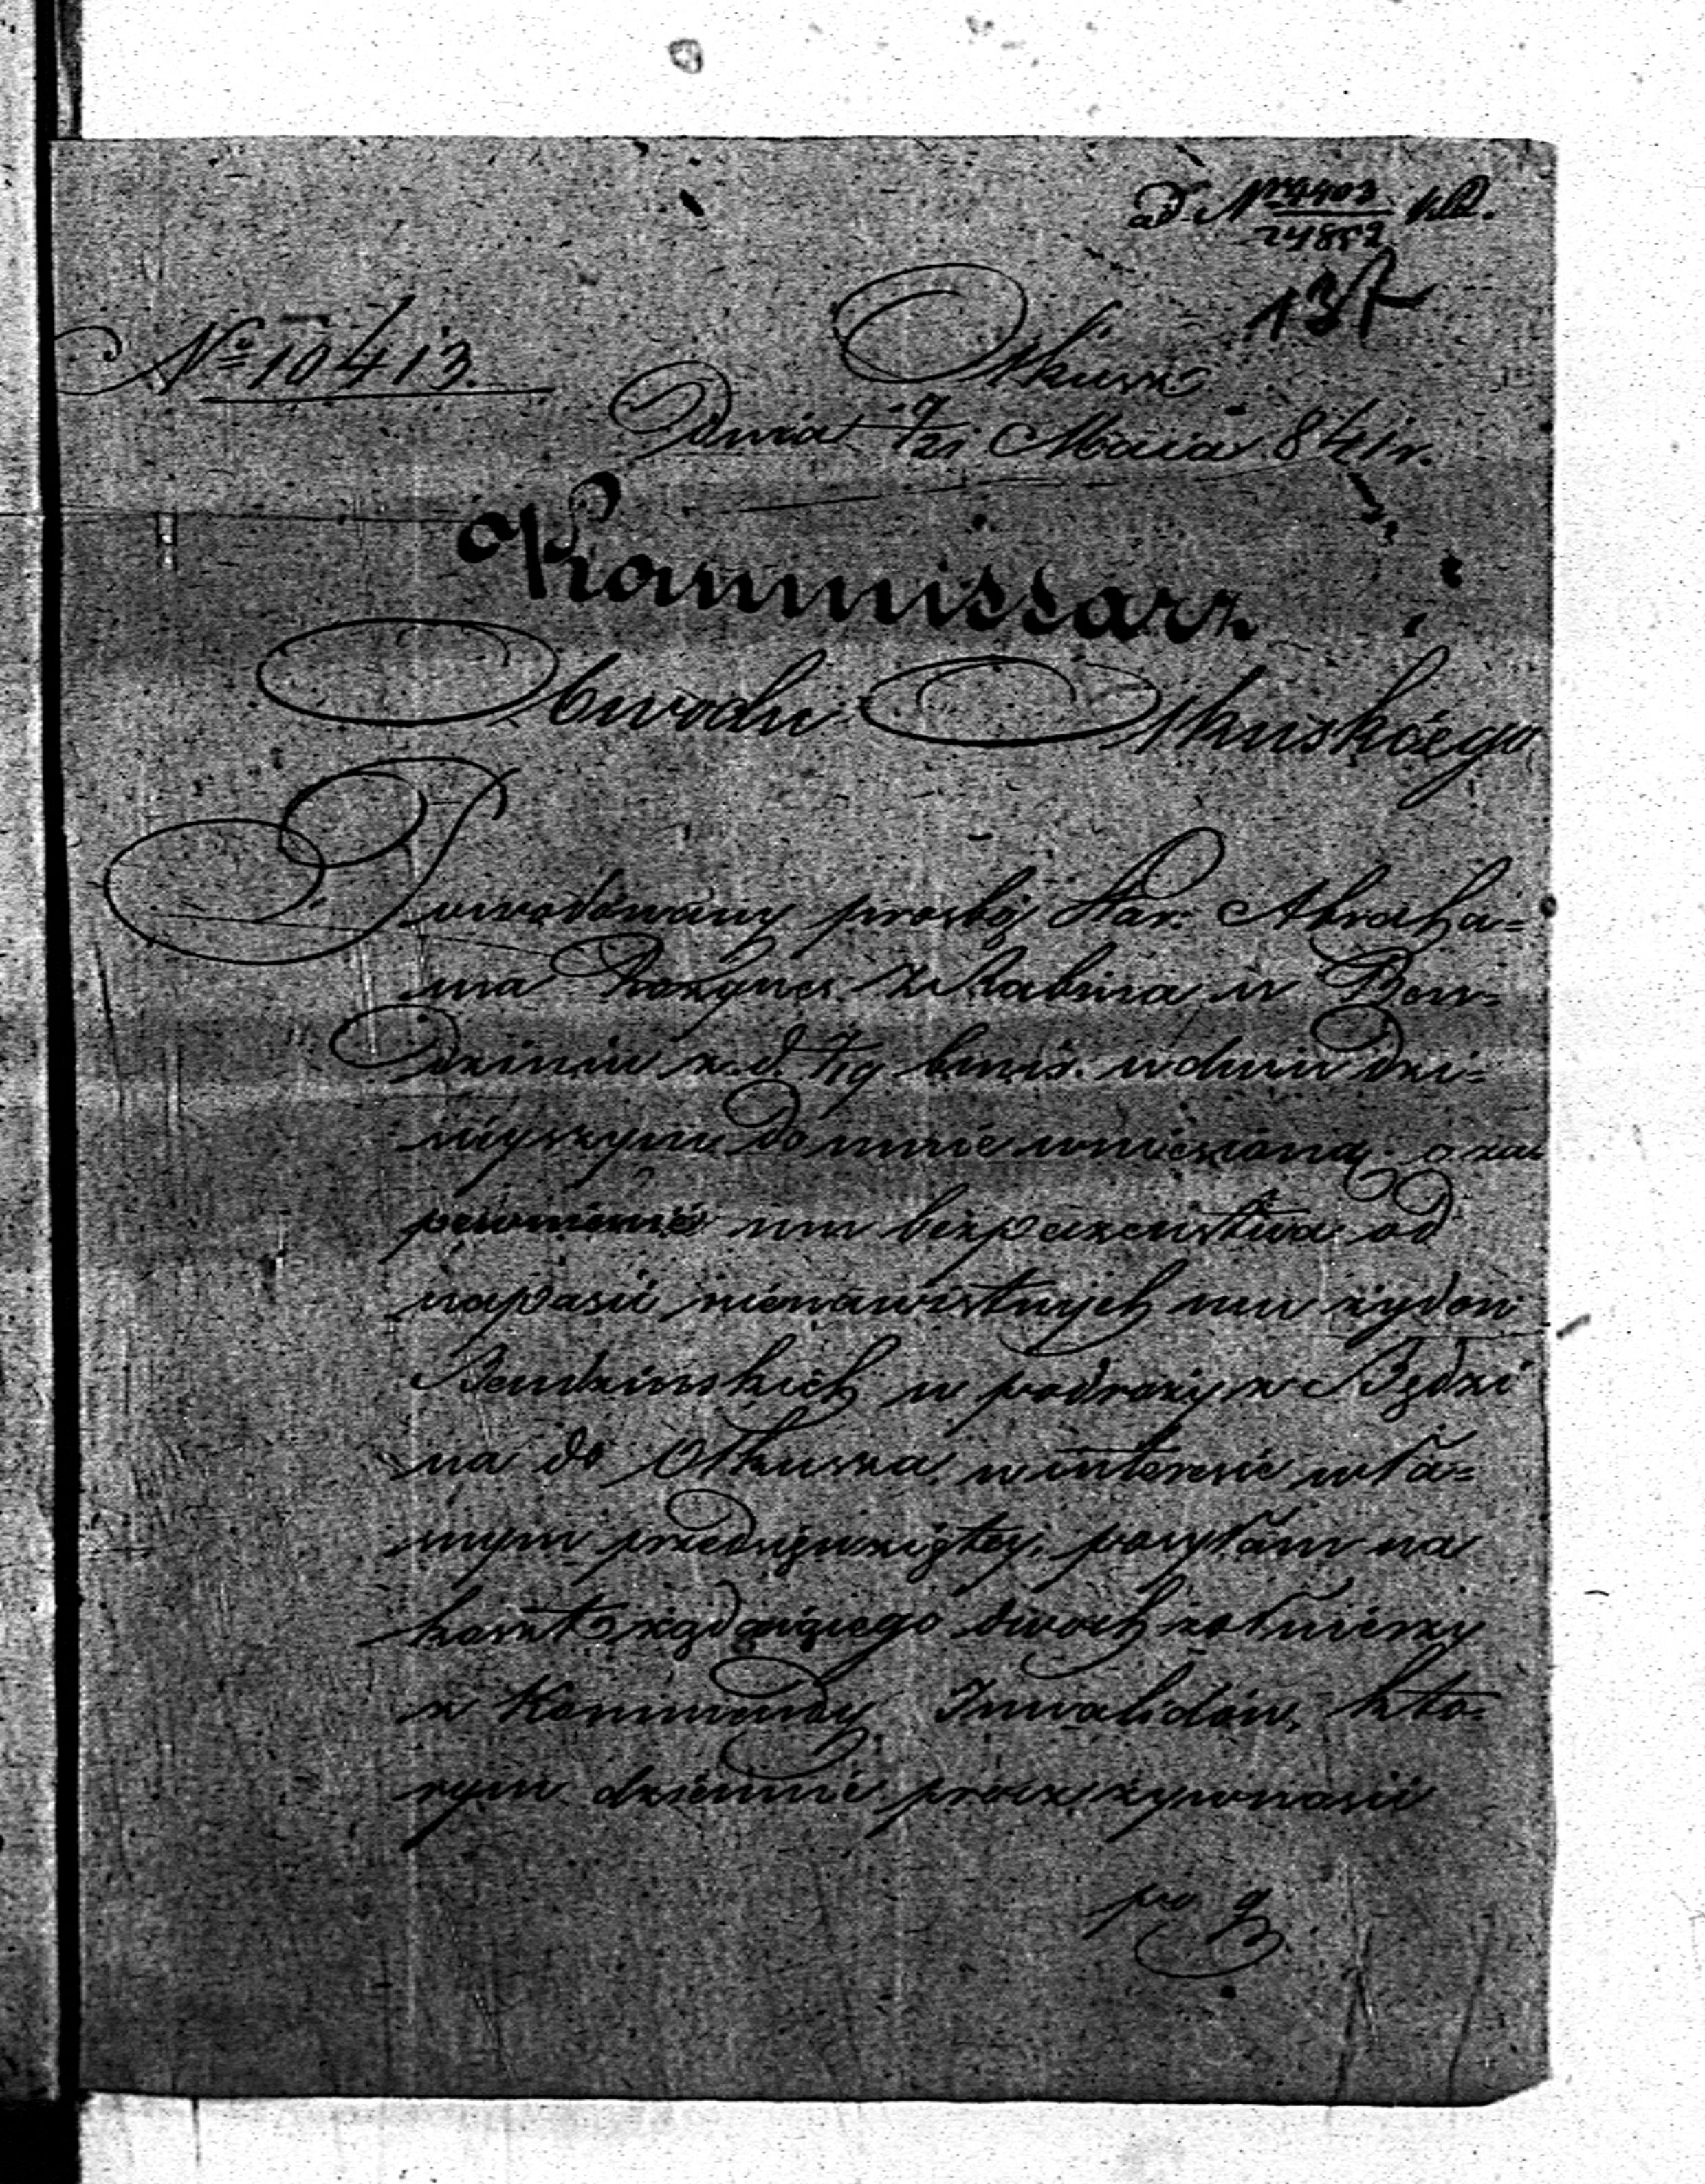 ad N 24852
137
№ 10413.
Olkusz
Dnia 9/21 Maia 841 r.
Kommissarz
Obwodu Olkuskiego
Powodowany prosbą Star. Abraha=
ma w Ben=
dzinie z d. 7/19 b. m. i r. w dniu dzi=
sieyszym do mnie wniesioną o za
pewnienie mu bezpieczenstwa od
napasci nienawistnych mu zydow
Bendzinskich w podrozy z Będzi
na do Olkusza w interesie wła=
snym przedsięwziętey, posyłam na
koszt żądaiącego dwoch żołnierzy
z Kommendy Inwalidów, kto=
rym dziennie procz zywnosci
po g